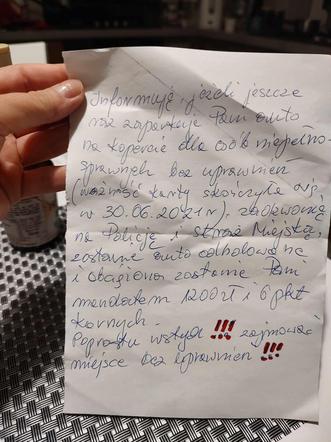 Informuję, jeżeli jeszcze
raz zaparkuje Pani auto
na kopercie dla osób niepełno-
sprawnych bez uprawnień
(ważność karty skończyła się
w 30.06.2021r), zadzwonię
na Policję i Straż Miejską,
zostanie auto odholowane
i obciążona zostanie Pani
mandatem 1200 zł i 6 pkt
karnych.
Poprostu wstyd !!! zajmować
miejsce bez uprawnień !!!